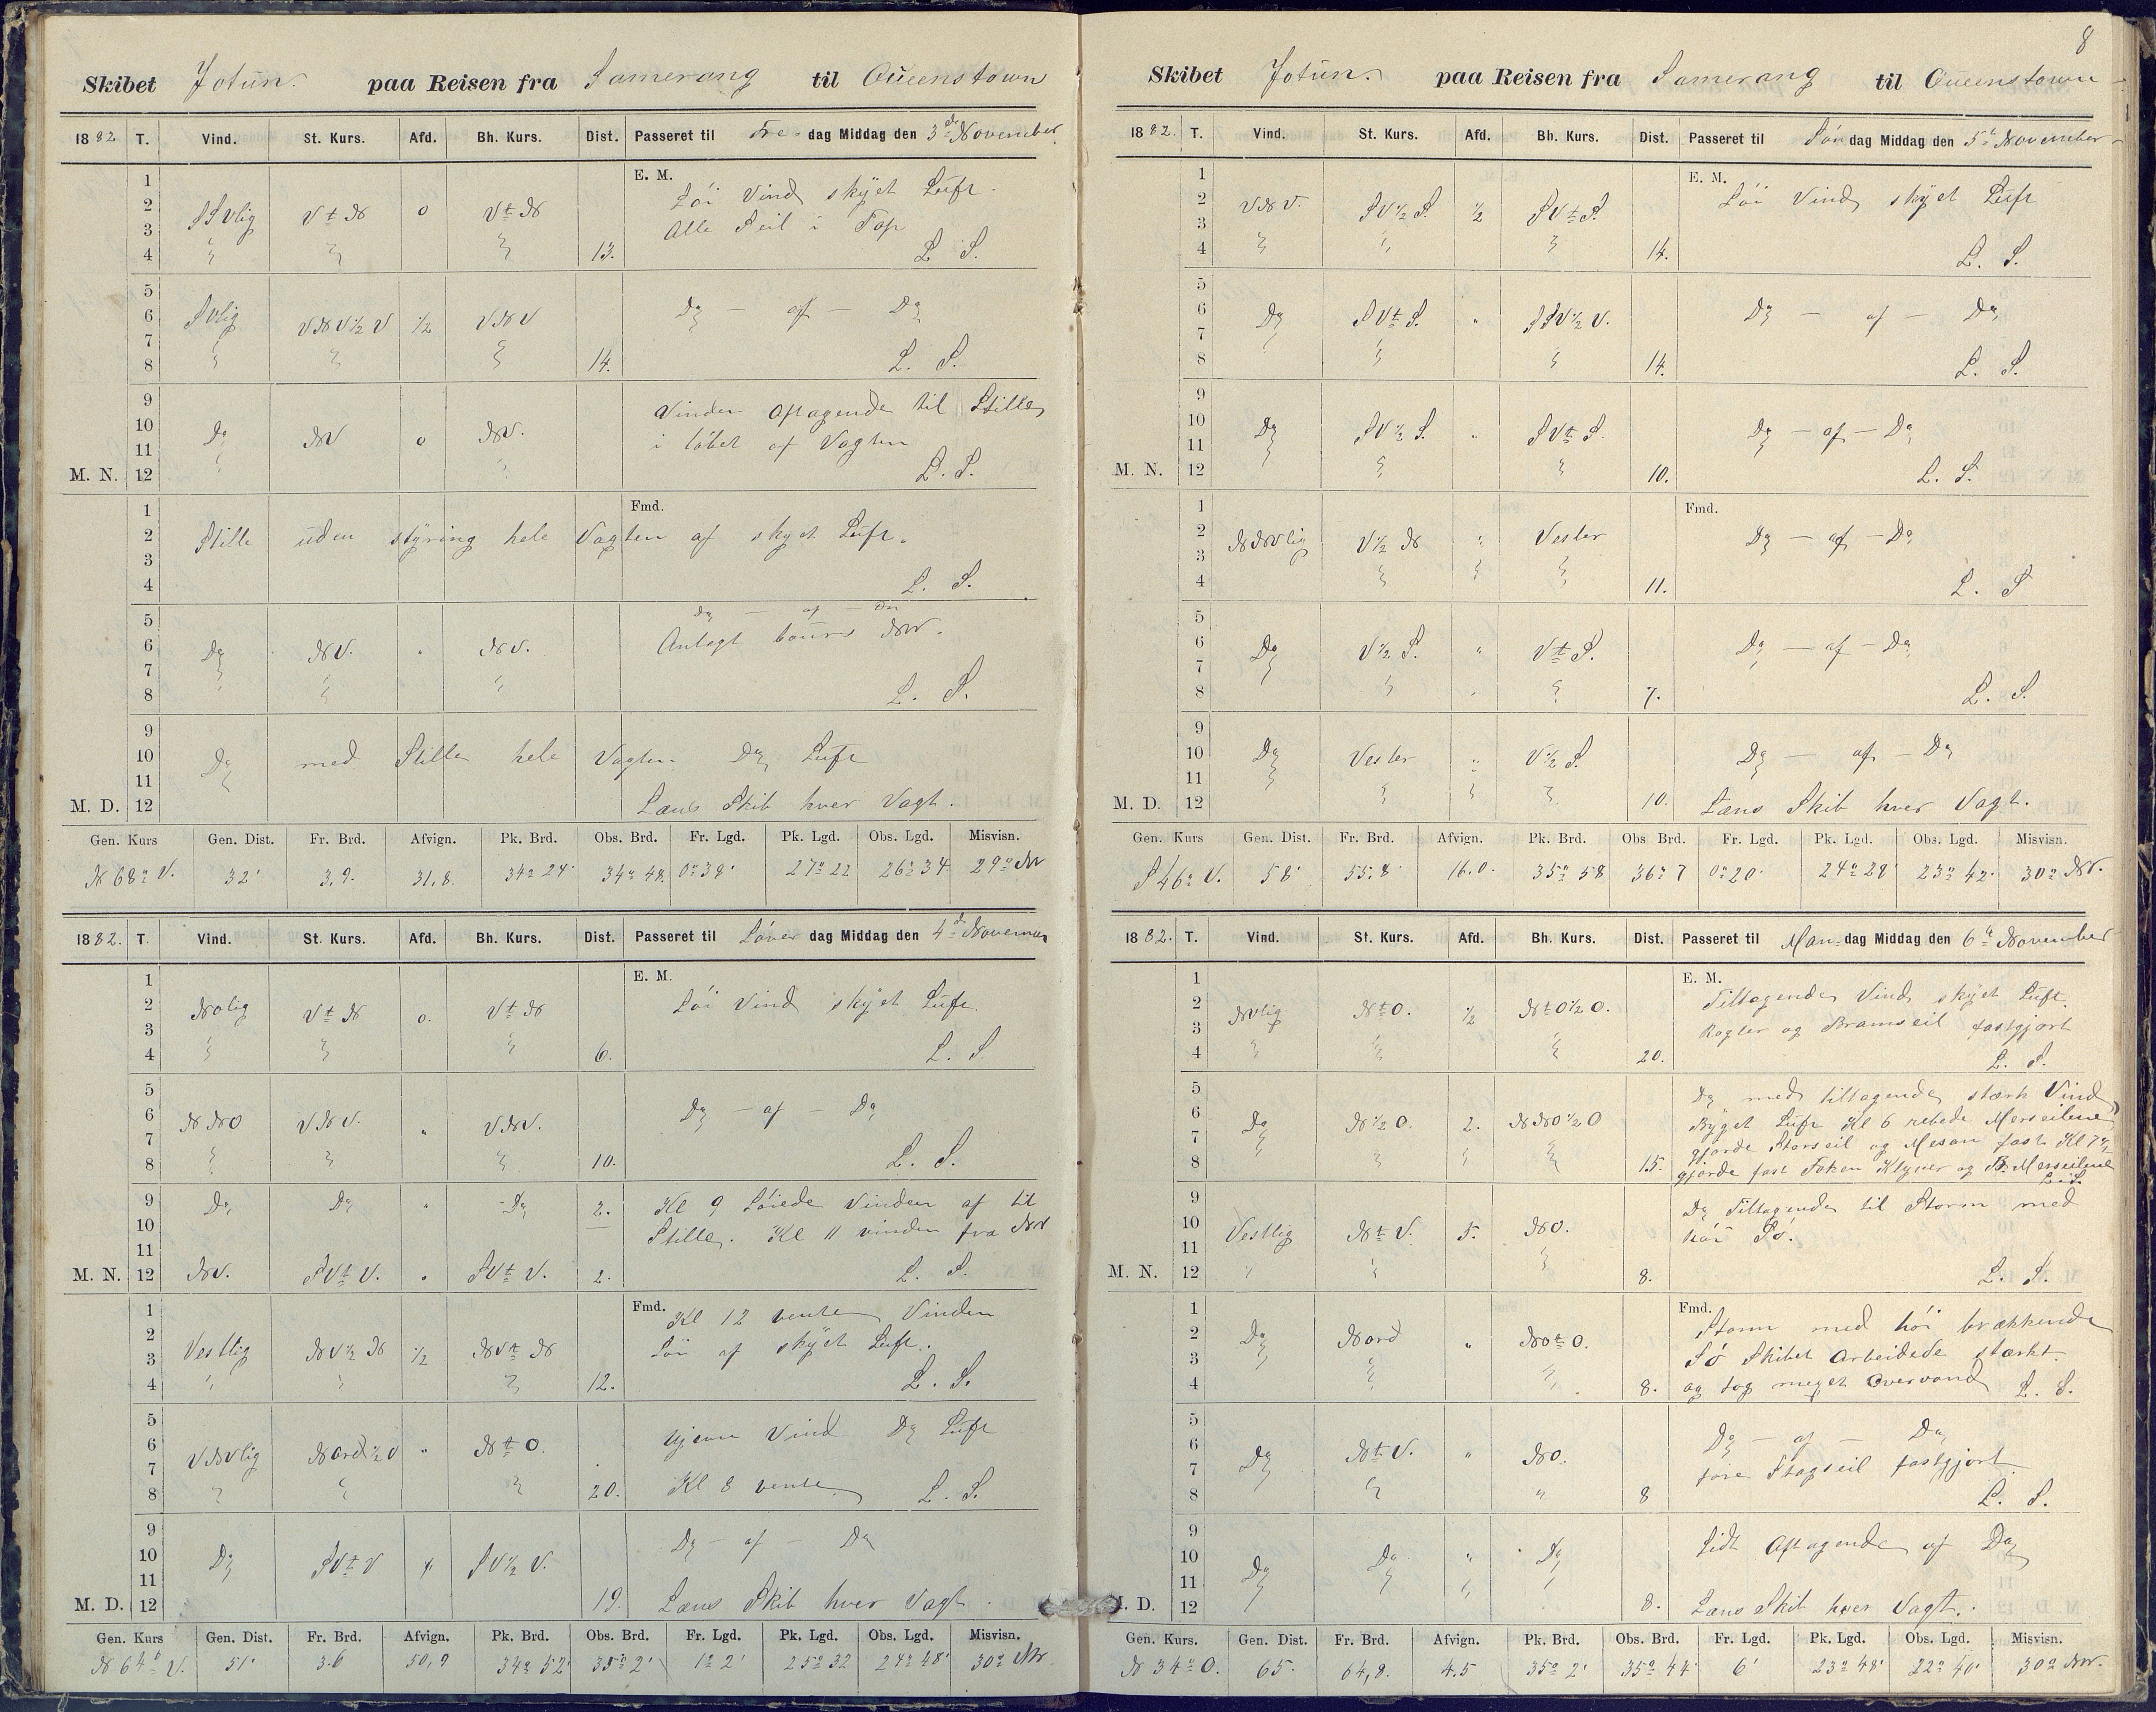 Skibet Jotun. paa Reisen fra Samerang til Queenstown
1882 T. Vind. St. Kurs. Afd. Bh. Kurs. Dist. Passeret til Fre- dag Middag den 3de November
1
E. M.
2 SSVlig Vt N 0 Vt N Löi Vind skÿet Luft.
3 Alle Seil i Top
4 13. L S.
5
6 SVlig VNV½V ½ VNV Do — af — Do
7
8 14. L. S.
9 Vinden aftagende til Stille
10 Do NV 0 NV. i löbet af Vagten
11
M. N. 12 L. S.
1 Fmd.
2 Stille uden stÿring hele Vagten af skÿet Luft.
3
4 L. S.
5 Do — af — Do
6 Do NV. NV. Anlagt Coürs NV.
7
8 L. S.
9
10 Do med Stille hele Vagten Do Luft
11
M. D. 12 Læns Skib hver Vagt.
Gen. Kurs Gen. Dist. Fr. Brd. Afvign. Pk. Brd. Obs. Brd. Fr. Lgd. Pk. Lgd. Obs. Lgd. Misvisn.
N 68° V. 32' 3,9. 31,8. 34° 24' 34° 48' 0° 38' 27° 22 26° 34 29° NV
1882. T. Vind. St. Kurs. Afd. Bh. Kurs. Dist. Passeret til Löver dag Middag den 4de
1 E. M.
2 NOlig Vt N 0. Vt N Löi Vind skÿet Luft.
3
4 6. L. S.
5
6 NNO VNV. VNV. Do — af — Do
7
8 10. L. S.
9 Do Do Do 2. Kl 9 Löiede Vinden af til
10 Stille. Kl 11 vinden fra NV
11
M. N. 12 NV. SVt V. SVt V. 2. L. S.
1 Fmd. Kl 12 vente Vinden
2 Löi af skÿet Luft.
3 Vestlig NV½ N ½ NVt N
4 12. L. S.
5 Ujevn Vind Do Luft
6 VNVlig Nord½O " Nt O.
7
8 20. Kl 8 vente L. S.
9 Do — af — Do
10 Do SVt V " SV½ V.
11
M. D. 12 19. Læns Skib hver Vagt.
Gen. Kurs Gen. Dist. Fr. Brd. Afvign. Pk. Brd. Obs. Brd. Fr. Lgd. Pk. Lgd. Obs. Lgd. Misvisn.
N 64° V. 51' 36 50,9 34° 52' 35° 2' 1° 2' 25° 32 24° 48' 30° NV.
8
Skibet Jotun. paa Reisen fra Samerang til Queenstown
1882. T. Vind. St. Kurs. Afd. Bh. Kurs. Dist. Passeret til Sön dag Middag den 5te November
1 E. M.
2 VNV. SV½ S. ½ SVt S. Löi Vind skÿet Luft
3
4 14. L. S.
5
6 Do SVt S. " SSV½ V. Do — af — Do
7
8 14. L. S.
9
10 Do SV½ S. SVt S. Do — af — Do
11
M. N. 12 10. L. S.
1 Fmd.
2 NNVlig V½ N " Vester Do — af — Do
3
4 11. L. S
5
6 Do V½ S. " Vt S. Do — af — Do
7
8 7. L. S.
9
10 Do Vester " V½ S. Do — af — Do
11
M. D. 12 10. Læns Skib hver Vagt.
Gen. Kurs Gen. Dist. Fr. Brd. Afvign. Pk. Brd. Obs Brd. Fr. Lgd. Pk. Lgd. Obs. Lgd. Misvisn.
S 46° V. 58' 55,8' 16.0. 35° 58 36° 7 0° 20' 24° 28' 23° 42' 30° NV.
1882. T. Vind. St. Kurs. Afd. Bh. Kurs. Dist. Passeret til Man- dag Middag den 6te November
1 E. M.
2 NVlig Nt O. ½ NtO½ O. Tiltagende Vind skÿet Luft.
3 Røgler og Bramseil fastgjort
4 20. L. S.
5 Do med tiltagende stærk Vind
6 Do N½ O. 2. NNO½ O Bÿget Luft Kl 6 rebede Merseilene
7 gjorde Storseil og Mesan fast Kl 7½
8 15. gjorde fast Fokken Klyver og B. Merseilene
L. S.
9 Do Tiltagende til Storm med
10 Vestlig Nt V. 5. NO. höi Sö.
11
M. N. 12 8. L. S.
1 Fmd. Storm med höi brækkende
2 Do Nord " NOt O. Sö Skibet Arbeidede stærkt
3
4 8. og tog meget Overvand L. S.
5
6 Do Nt V. " NO. Do — af — Do
7 fore Stagseil fastgjort
8 8 L. S.
9
10 Do Do " Do Lidt Aftagende af Do
11
M. D. 12 8. Læns Skib hver Vagt.
Gen. Kurs. Gen. Dist. Fr. Brd. Afvign. Pk. Brd. Obs. Brd. Fr. Lgd. Pk. Lgd. Obs. Lgd. Misvisn.
N 34° O. 65. 64,8. 4.5 35° 2' 35° 44' 6' 23° 48' 22° 40' 30° NV.